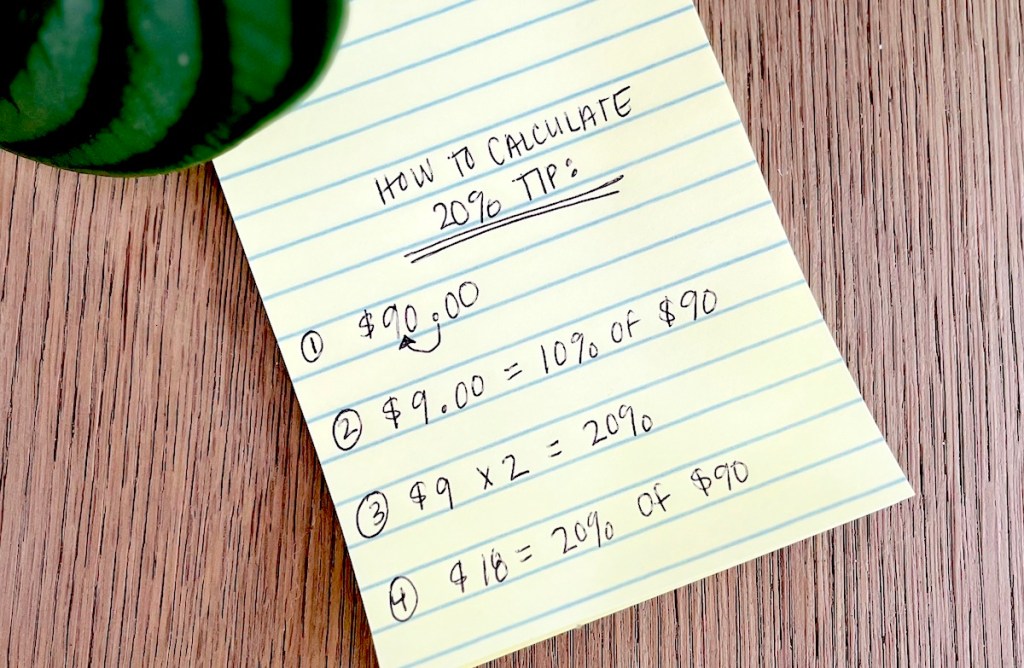 HOW TO CALCULATE
20% TIP:
① $90.00
② $9.00 = 10% OF $90
③ $9 x 2 = 20%
④ $18 = 20% OF $90